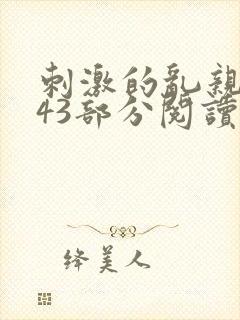 刺激的乱親
43部分閱讀
绛美人